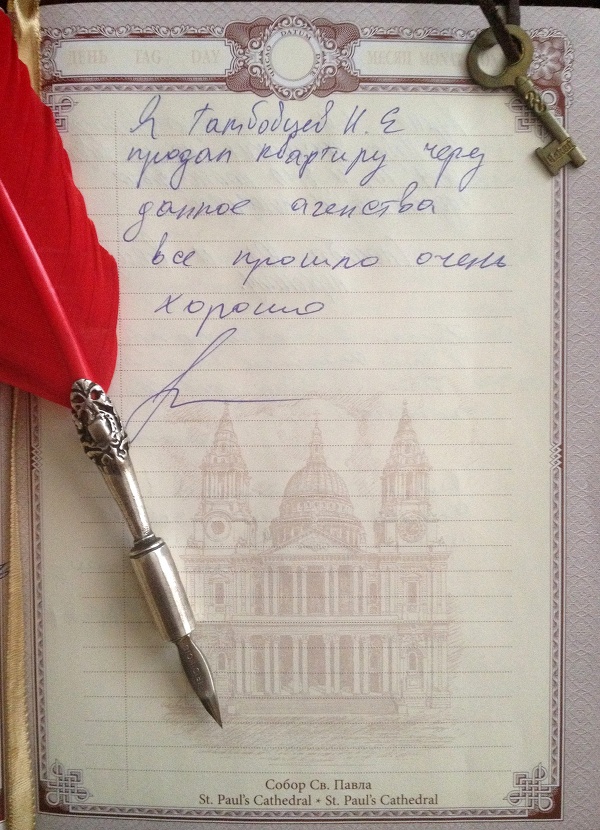 ДЕНЬ TAG DAY DATUM МЕСЯЦ MONAT
Я Гатбовцев Н. Е
продал квартиру через
данное агенства
все прошло очень
хорошо
Собор Св. Павла
St. Paul's Cathedral • St. Paul's Cathedral